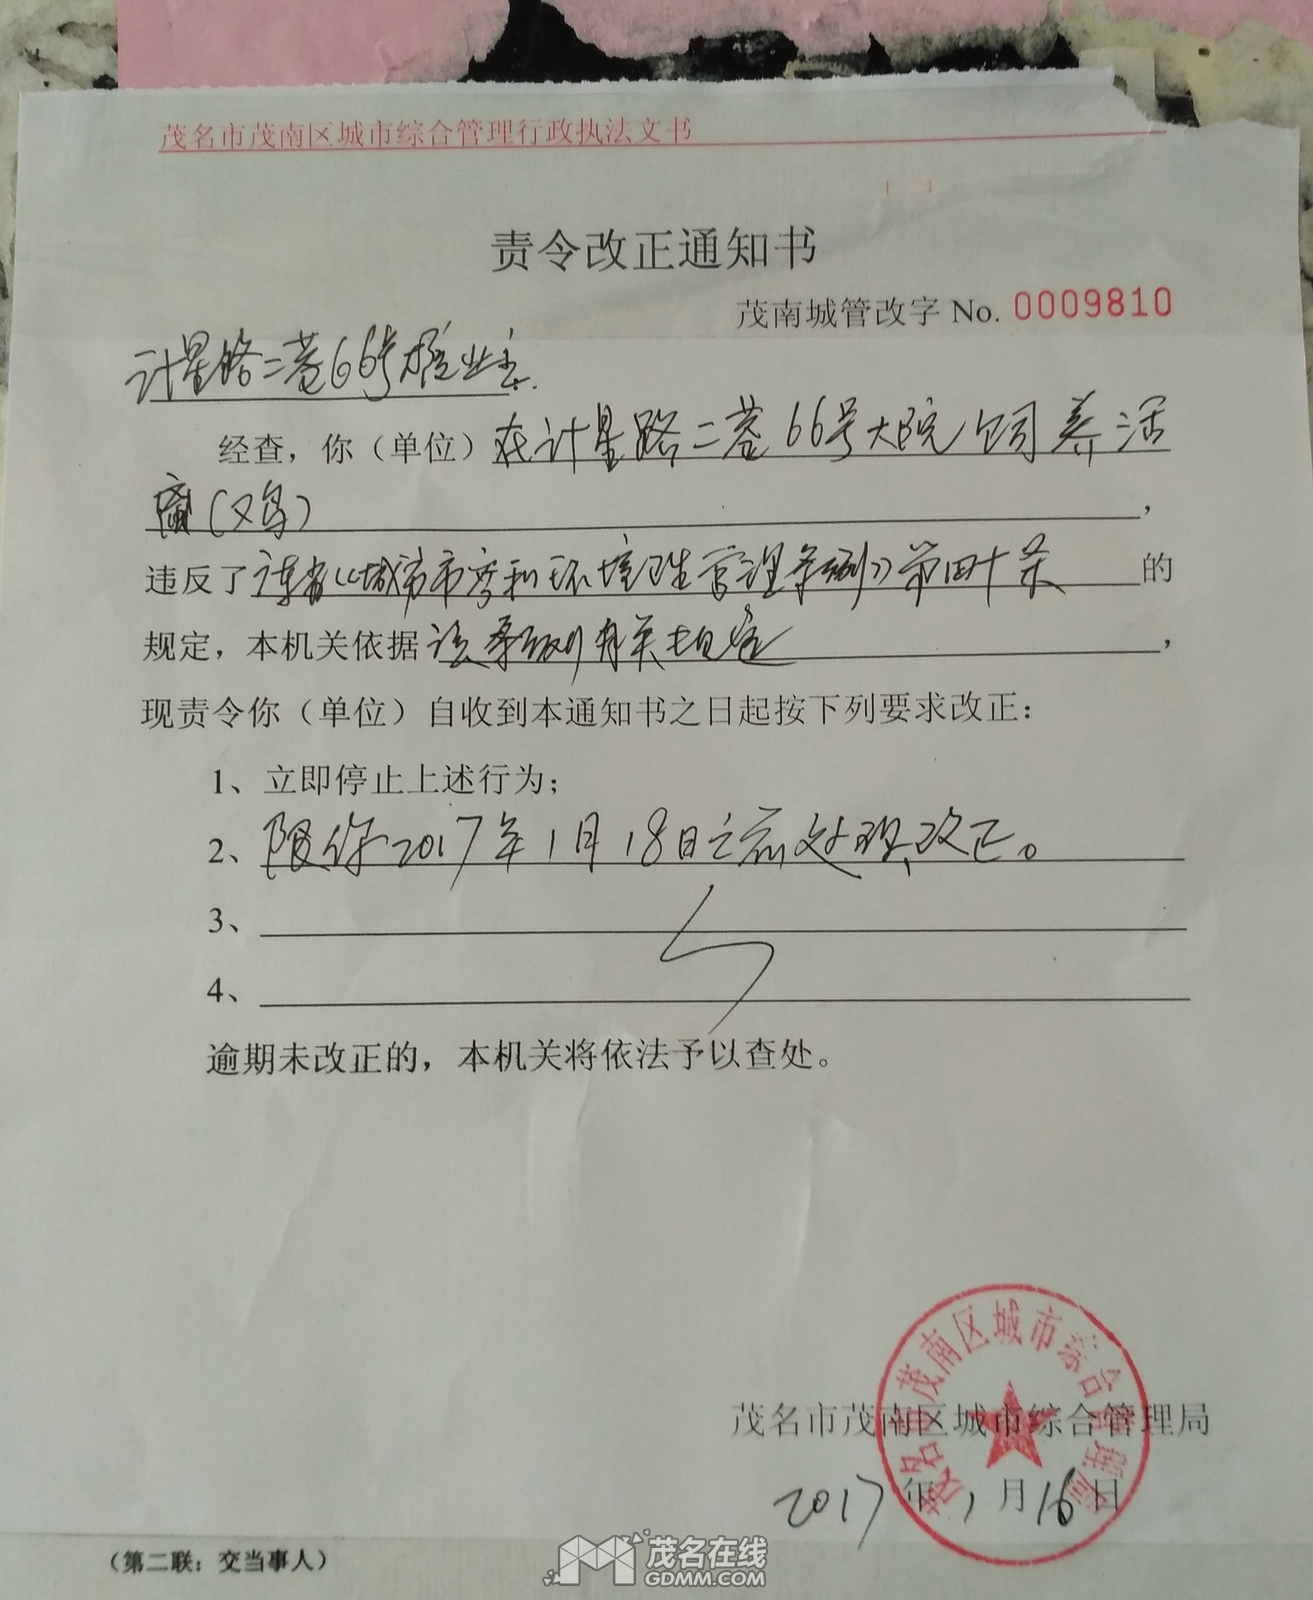 茂名市茂南区城市综合管理行政执法文书
责令改正通知书
茂南城管改字 No. 0009810
计星路二巷66号楼业主.
经查，你（单位）在计星路二巷66号大院饲养活
禽(鸡)，
违反了 《城市市容和环境卫生管理条例》第四十条的
规定，本机关依据该条例有关规定，
现责令你（单位）自收到本通知书之日起按下列要求改正：
1、立即停止上述行为；
2、限你2017年1月18日之前处理、改正。
3、
4、
逾期未改正的，本机关将依法予以查处。
茂名市茂南区城市综合管理局
茂名市茂南区城市综合管理局
2017年1月16日
（第二联：交当事人）
茂名在线
GDMM.COM